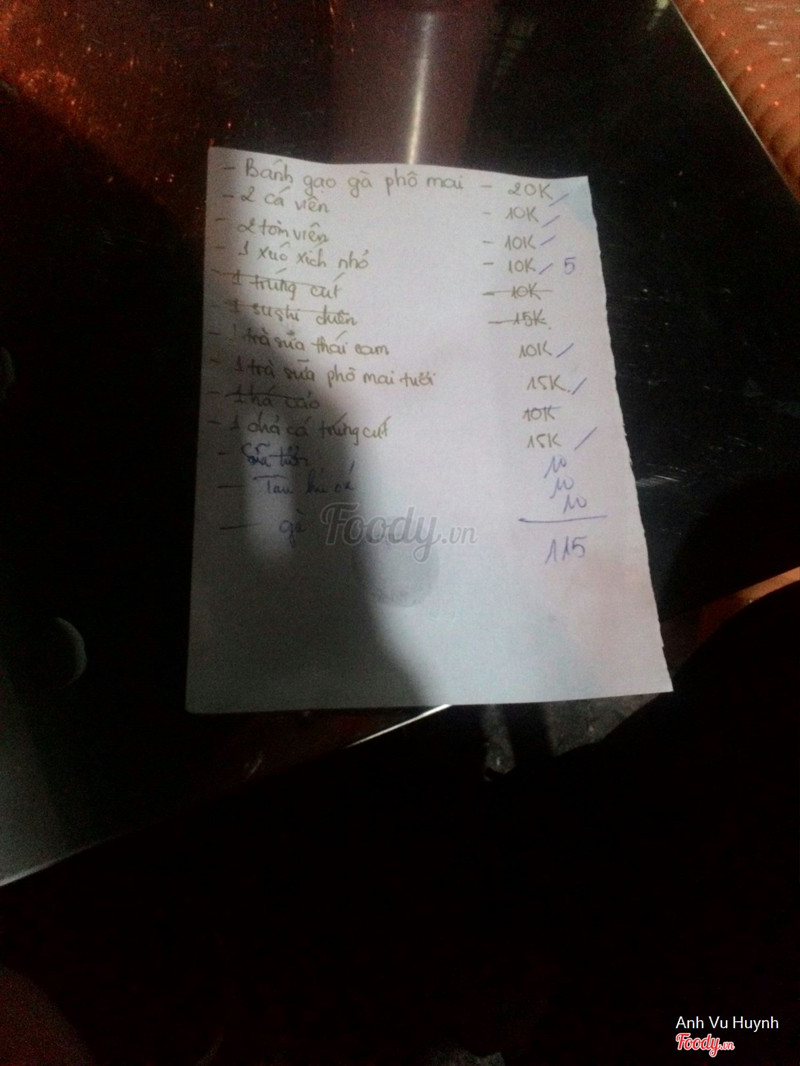 - Bánh gạo gà phô mai - 20K
- 2 cá viên - 10K
- 2 tôm viên - 10K
- 1 xúc xích nhỏ - 10K 5
- 1 trứng cút - 10K
- 1 sushi chiên - 15K
- 1 trà sữa thái cam 10K
- 1 trà sữa phô mai tươi 15K
- 1 há cảo 10K
- 1 chả cá trứng cút 15K
- Sữa tươi 10
- Tàu hủ cá 10
- gà 10
115
Foody.vn
Anh Vu Huynh
Foody.vn